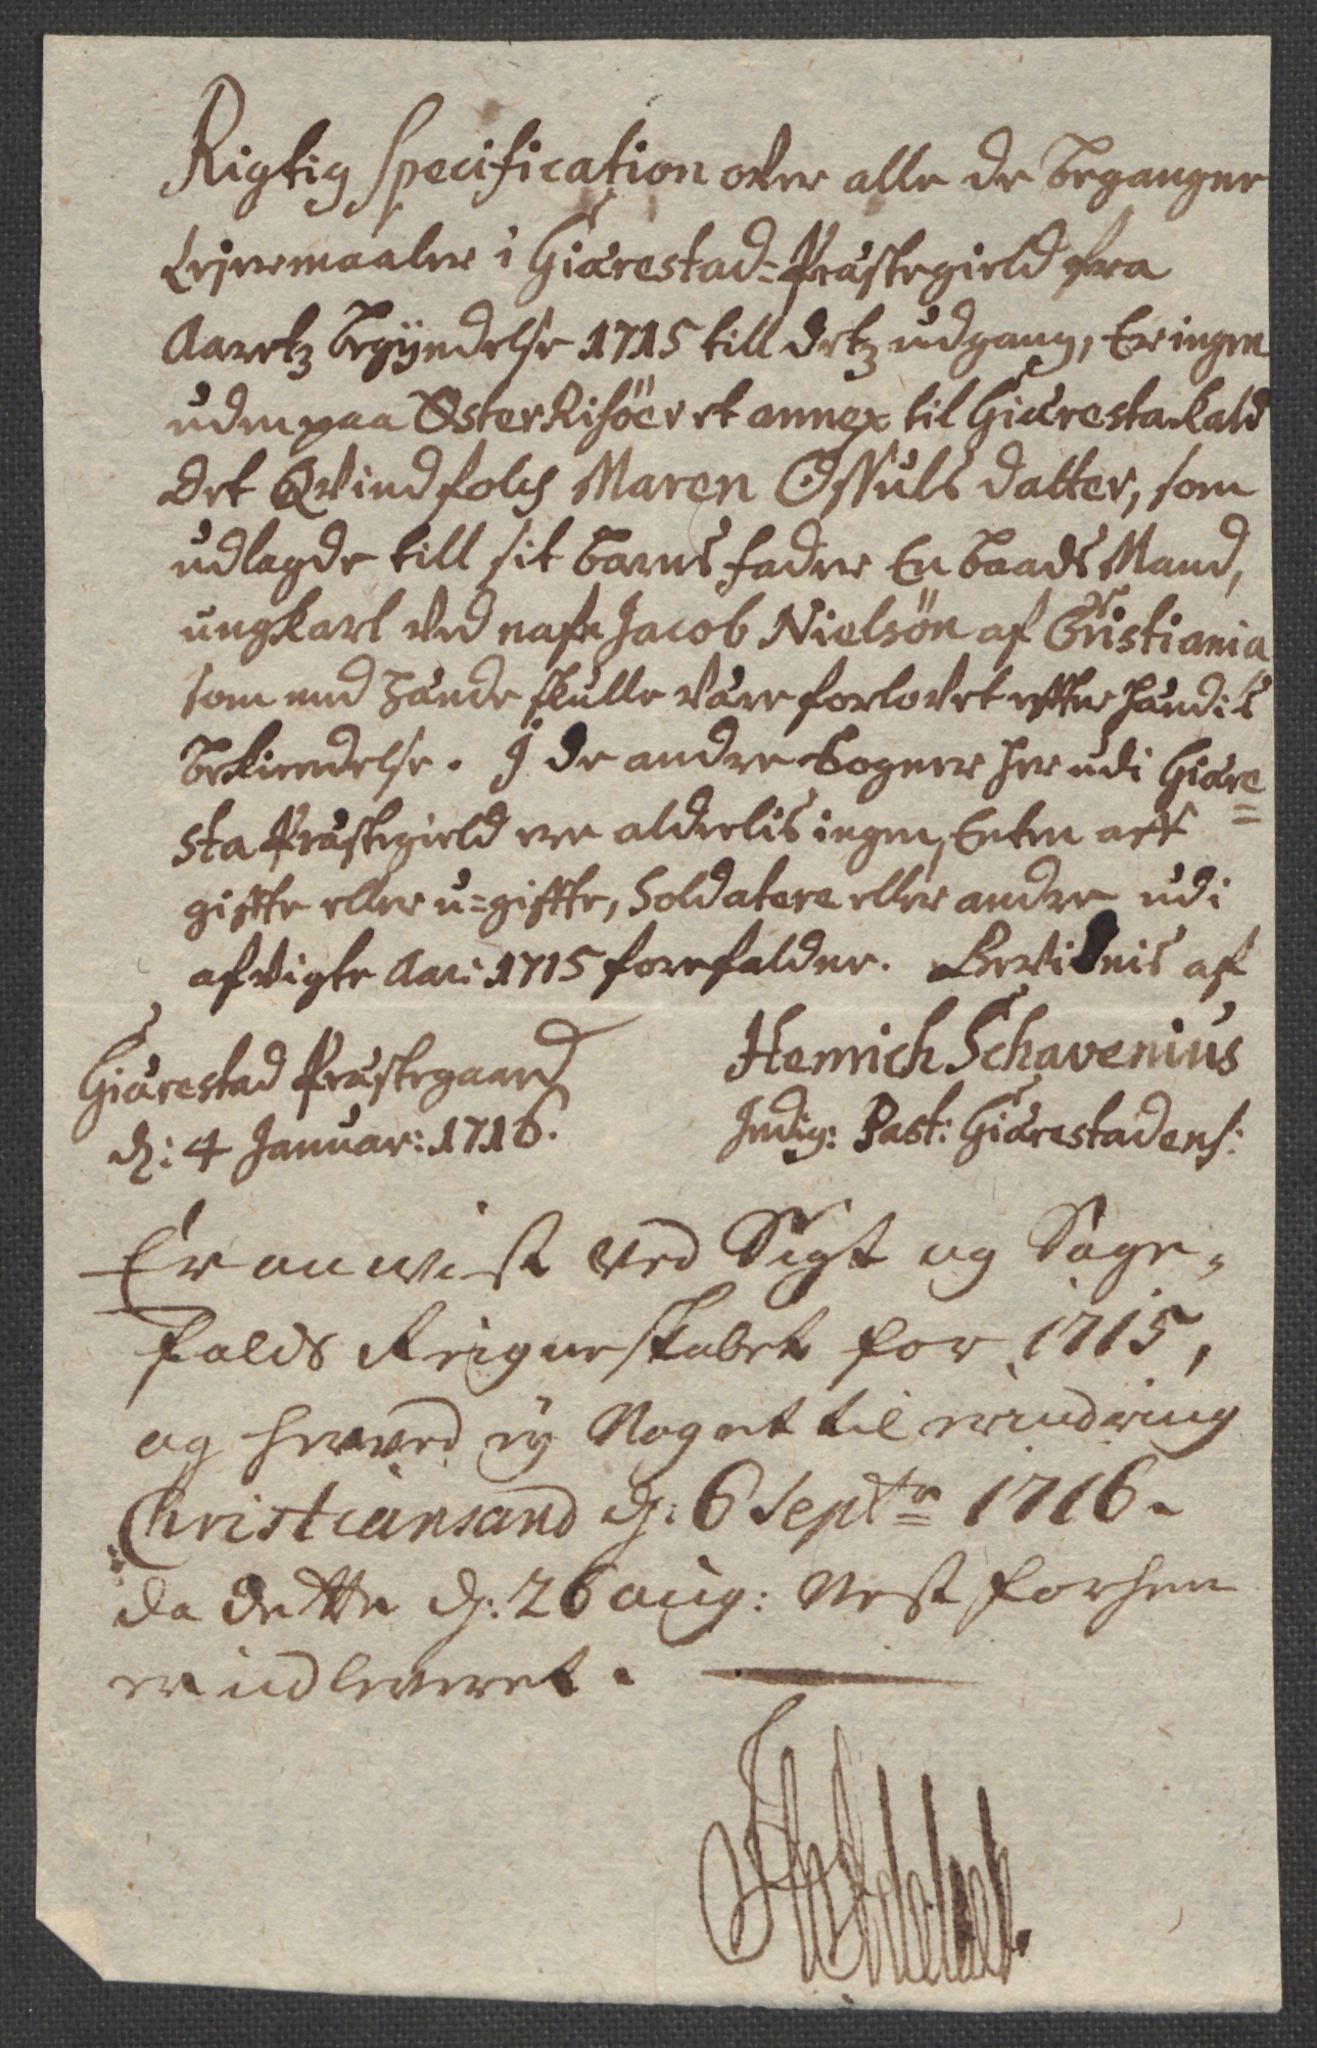 Rigtig Specification over alle de begangne
Leyermaaler i Giærestad-Præstegield fra
Aaretz begÿndelse 1715 till detz udgang, Er ingen
uden paa ØsterRisöer et annex til Giæresta Kald
det Qvindfolch Maren OsSuls datter, som
udlagde till sit barns fader En baads Mand,
ungkarl ved nafn Jacob Nielsön af Cristiania
som med hænde skulle være forlovet effter hændis
bekiendelse. I de andre Sogner her udi Giære=
sta Præstegield ere alderlis ingen, Enten aff
giffte eller u=giffte, Soldatere eller andre udi
afvigte Aar: 1715 forefalden. Bevidnis af
Giærestad Præstegaard
d: 4 Januar: 1716.
Henrich Schavenius
Indig: Past: Giærestadens:
Er anvist ved Sigt og Sage-
falds Reigneskabet for 1715,
og herved ey Noget til erindring
Christiansand d: 6 Septr 1716.
da dette d: 26 aug: Nest forhen
er indleveret.